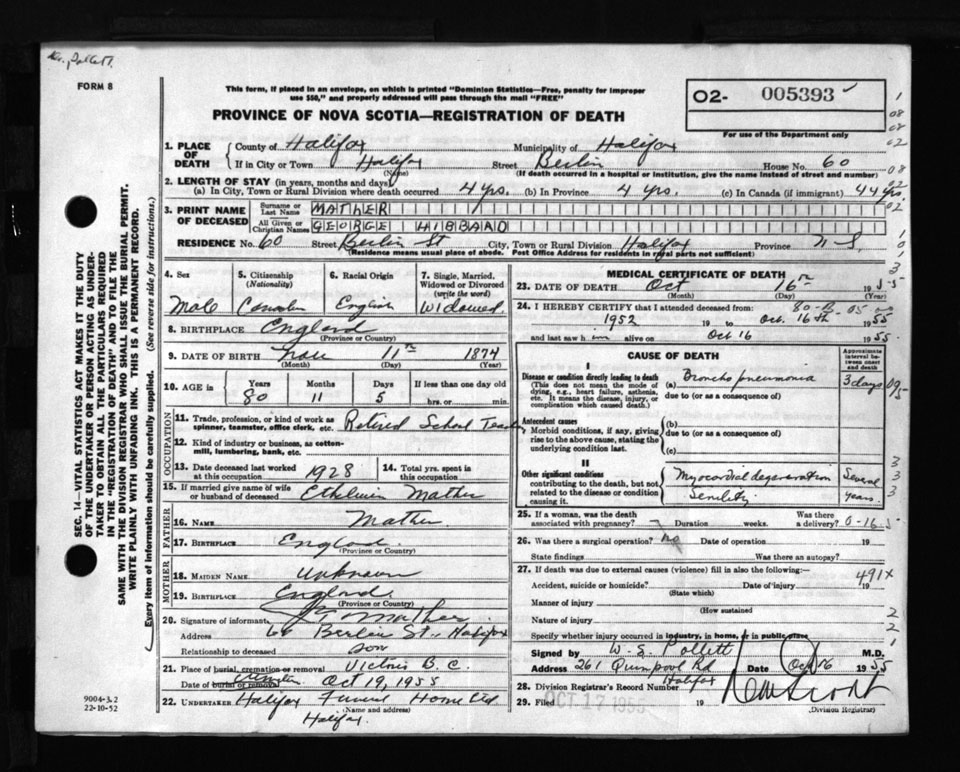 Dr. Pollett.
FORM 8
This form, if placed in an envelope, on which is printed "Dominion Statistics—Free, penalty for improper
use $50," and properly addressed will pass through the mail "FREE"
PROVINCE OF NOVA SCOTIA—REGISTRATION OF DEATH
02- 005393
For use of the Department only
1. PLACE OF DEATH
County of Halifax Municipality of Halifax
If in City or Town Halifax Street Berlin House No. 60
(Name) (If death occurred in a hospital or institution, give the name instead of street and number)
2. LENGTH OF STAY (in years, months and days)
(a) In City, Town or Rural Division where death occurred 4 yrs. (b) In Province 4 yrs. (c) In Canada (if immigrant) 44 yrs
3. PRINT NAME OF DECEASED
Surname or Last Name MATHER
All Given or Christian Names GEORGE HIBBARD
RESIDENCE No. 60 Street Berlin St City, Town or Rural Division Halifax Province N S
(Residence means usual place of abode. Post Office Address for residents in rural parts not sufficient)
4. Sex
Male
5. Citizenship (Nationality)
Canadian
6. Racial Origin
English
7. Single, Married, Widowed or Divorced (write the word)
Widowed
8. BIRTHPLACE England
(Province or Country)
9. DATE OF BIRTH Nov 11th 1874
(Month) (Day) (Year)
10. AGE in Years 80 Months 11 Days 5 If less than one day old
hrs. or min.
OCCUPATION
11. Trade, profession, or kind of work as spinner, teamster, office clerk, etc. Retired School Teacher
12. Kind of industry or business, as cotton-mill, lumbering, bank, etc.
13. Date deceased last worked at this occupation 1928
14. Total yrs. spent in this occupation
15. If married give name of wife or husband of deceased Ethelwin Mather
FATHER
16. NAME Mather
17. BIRTHPLACE England
(Province or Country)
MOTHER
18. MAIDEN NAME Unknown
19. BIRTHPLACE England
(Province or Country)
20. Signature of informant Mather
Address 60 Berlin St., Halifax
Relationship to deceased son
21. Place of burial, cremation or removal Victoria B.C.
Date of burial or removal cremation Oct 19, 1955
22. UNDERTAKER Halifax Funeral Home Ltd
(Name and address)
Halifax
MEDICAL CERTIFICATE OF DEATH
23. DATE OF DEATH Oct 16th 1955
(Month) (Day) (Year)
24. I HEREBY CERTIFY that I attended deceased from:
1952 19 to Oct. 16th 1955
and last saw him alive on Oct 16 1955.
CAUSE OF DEATH
Approximate interval between onset and death
I
Disease or condition directly leading to death
(This does not mean the mode of dying, e.g., heart failure, asthenia, etc. It means the disease, injury, or complication which caused death.)
(a) Broncho pneumonia 3 days
due to (or as a consequence of)
Antecedent causes
Morbid conditions, if any, giving rise to the above cause, stating the underlying condition last.
(b)
due to (or as a consequence of)
(c)
II
Other significant conditions
contributing to the death, but not related to the disease or condition causing it.
Myocardial degeneration Several
Senility years.
25. If a woman, was the death associated with pregnancy? Duration weeks. Was there a delivery?
26. Was there a surgical operation? no Date of operation 19
State findings Was there an autopsy?
27. If death was due to external causes (violence) fill in also the following:—
491x
Accident, suicide or homicide? Date of injury 19
(State which)
Manner of injury
(How sustained
Nature of injury
Specify whether injury occurred in industry, in home, or in public place
Signed by W. S. Pollett M.D.
Address 261 Quinpool Rd Date Oct 16 1955
Halifax
28. Division Registrar's Record Number
29. Filed OCT 17 1955 19
(Division Registrar)
SEC. 14—VITAL STATISTICS ACT MAKES IT THE DUTY
OF THE UNDERTAKER OR PERSON ACTING AS UNDER-
TAKER TO OBTAIN ALL THE PARTICULARS REQUIRED
IN THE "REGISTRATION OF DEATH" AND TO FILE THE
SAME WITH THE DIVISION REGISTRAR WHO SHALL ISSUE THE BURIAL PERMIT.
WRITE PLAINLY WITH UNFADING INK. THIS IS A PERMANENT RECORD.
Every item of information should be carefully supplied. (See reverse side for instructions.)
9004-3.2
22-10-52